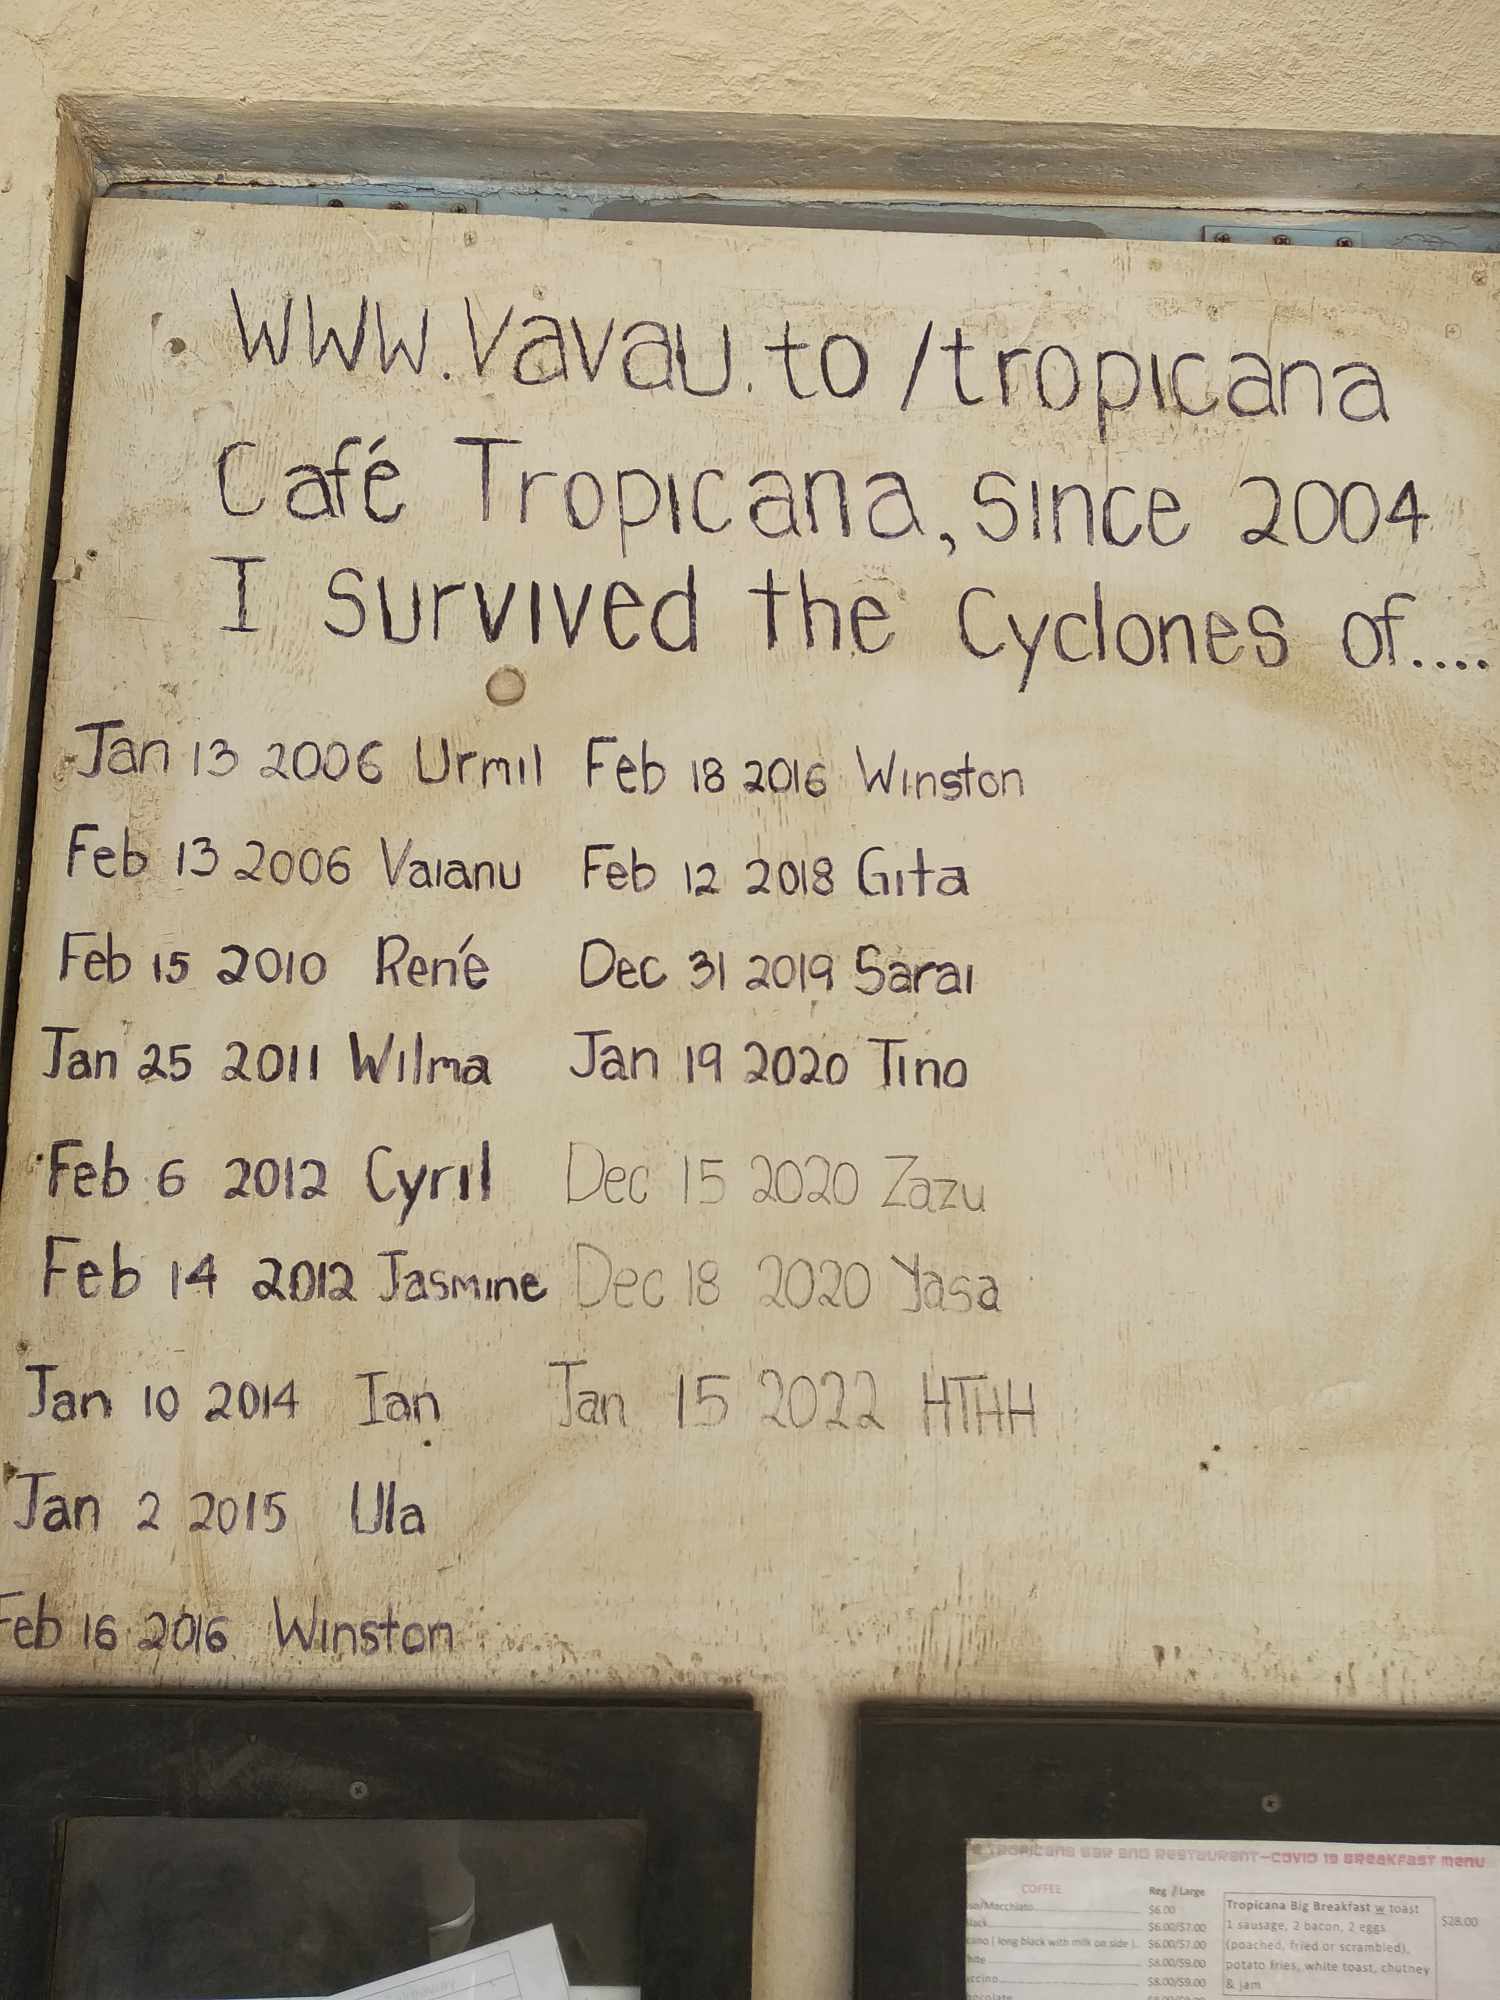 www.vavau.to/tropicana
Café Tropicana, since 2004
I survived the Cyclones of....
Jan 13 2006 Urmil
Feb 13 2006 Vaianu
Feb 15 2010 René
Jan 25 2011 Wilma
Feb 6 2012 Cyril
Feb 14 2012 Jasmine
Jan 10 2014 Ian
Jan 2 2015 Ula
Feb 16 2016 Winston
Feb 18 2016 Winston
Feb 12 2018 Gita
Dec 31 2019 Sarai
Jan 19 2020 Tino
Dec 15 2020 Zazu
Dec 18 2020 Yasa
Jan 15 2022 HTHH
TROPICANA BAR AND RESTAURANT-COVID 19 BREAKFAST MENU
COFFEE Reg / Large
so/Macchiato $6.00
$6.00/$7.00
cano ( long black with milk on side ) $6.00/$7.00
$8.00/$9.00
ccino $8.00/$9.00
Tropicana Big Breakfast w toast
1 sausage, 2 bacon, 2 eggs $28.00
(poached, fried or scrambled),
potato fries, white toast, chutney
& jam